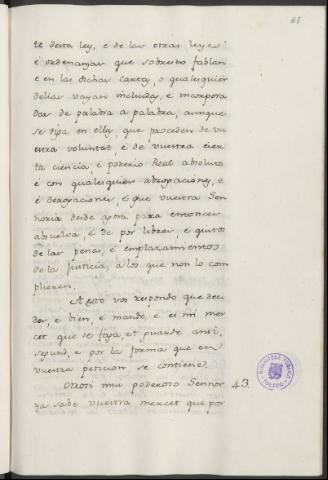 61
te desta ley, é de las otras leyes
é ordenanzas que sobresto fablan
é en las dichas cartas, o qualesquier
dellas vayan incluidas, é incorpora
das de palabra a palabra, aunque
se diga en ellas, que proceden de vu
estra voluntat, é de vuestra cier
ta ciencia, é poderio Real absoluto
é con qualesquier abrogaciones, e
é derogaciones, é que vuestra Sen
noria desde agora para entonces
absuelva, é dé por libres, é quitos
de las penas, é emplazamientos
de la Justicia, a los que non lo com
plieren.
A esto vos respondo que deci
des, é bien, é mando, é es mi mer
cet que se faga, et guarde ansi,
segund, e por la forma que en
vuestra peticion se contiene.
Otrosi mui poderoso Sennor 43
ya sabe vuestra mercet que por
BIBLIOTECA PUBLICA
TOLEDO